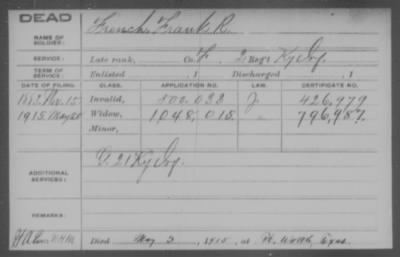 DEAD
NAME OF SOLDIER: French, Frank R.
SERVICE: Late rank, Co. F, 2 Reg't Ky Inf.
TERM OF SERVICE: Enlisted , 1 Discharged , 1
DATE OF FILING. CLASS. APPLICATION NO. LAW. CERTIFICATE NO.
1882 Nov. 15 Invalid, 500.033 J 426,779
1915 May 25 Widow, 1048,015. " 796,487.
Minor,
ADDITIONAL SERVICES: 21 Ky Inf.
REMARKS:
Died May 5, 1915, at Ft. Worth, Texas.